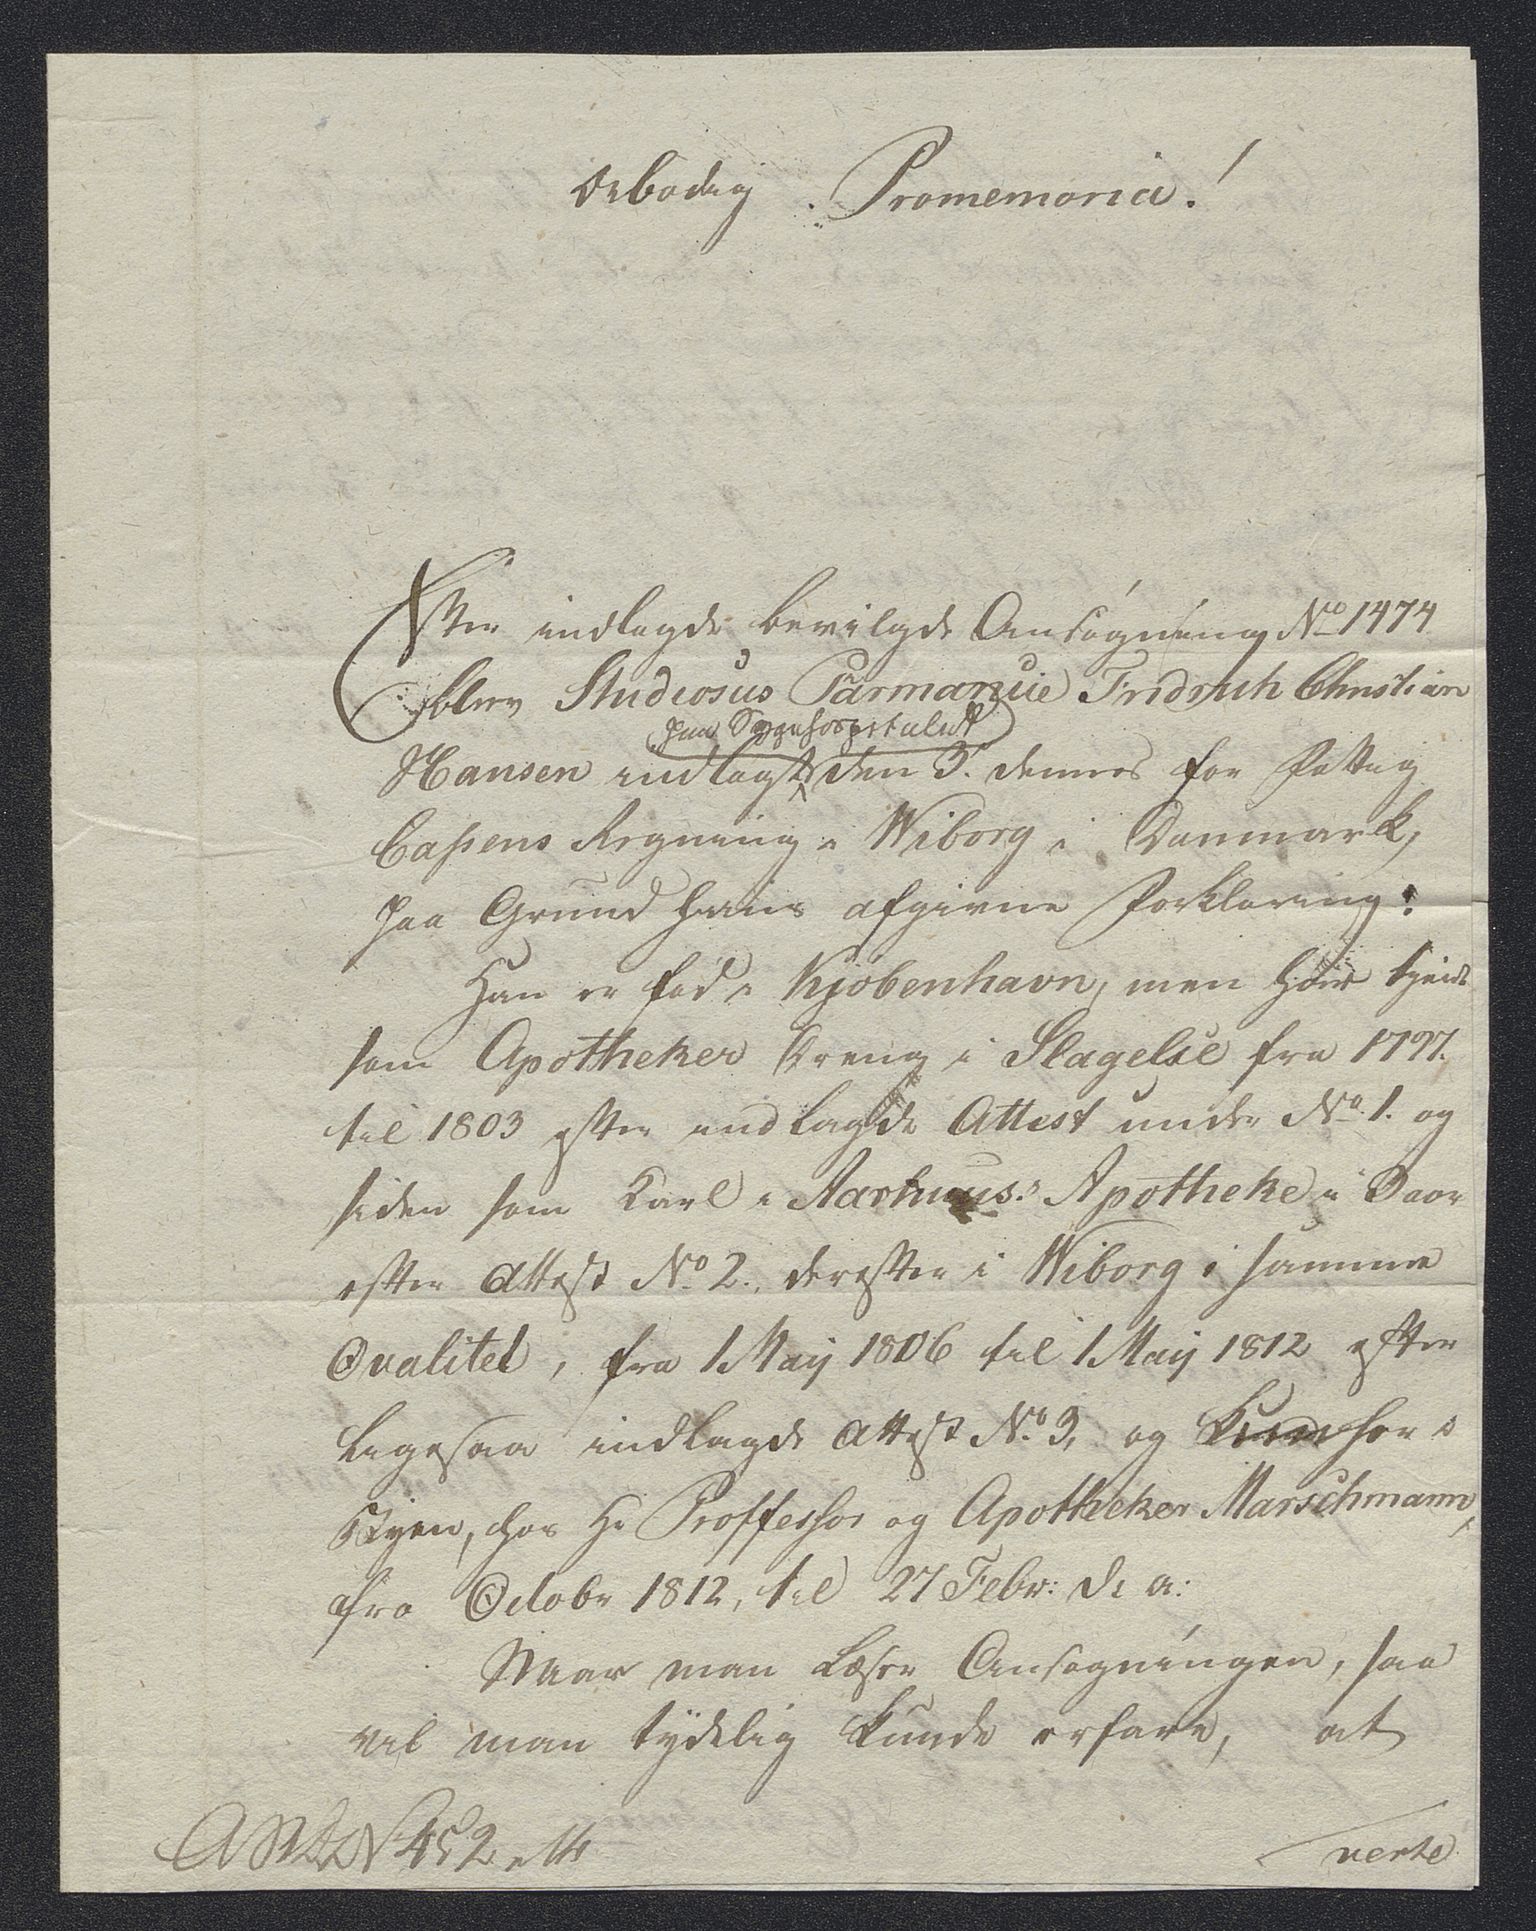 Ærbødig Promemoria!
Efter indlagde bevilgde Ansøgning No 1474
blev Studiosus Farmancie Fridrich Christian
paa Sygehospitalet
Hansen indlagt den 3. dennes for Fattig
Cassens Regning i Wiborg i Danmark,
paa Grund hans afgivne Forklaring:
Han er fød i Kjøbenhavn, men har tjent
som Apotheker Dreng i Slagelse fra 1797.
til 1803 efter indlagde Attest under No. 1. og
siden som Karl i Aarhuus Apotheke i
efter Attest No 2. derefter i Wiborg i samme
Qvalitet, fra 1 May 1806 til 1 May 1812 efter
ligesaa indlagde Attest No. 3, og her i
Byen, hos Hr Proffessor og Apotheker Marschmann,
fra Octobr 1812, til 27 Febr: d. a:
Naar man læser Ansøgningen, saa
vil man tydelig kunde erfare, at
452
verte